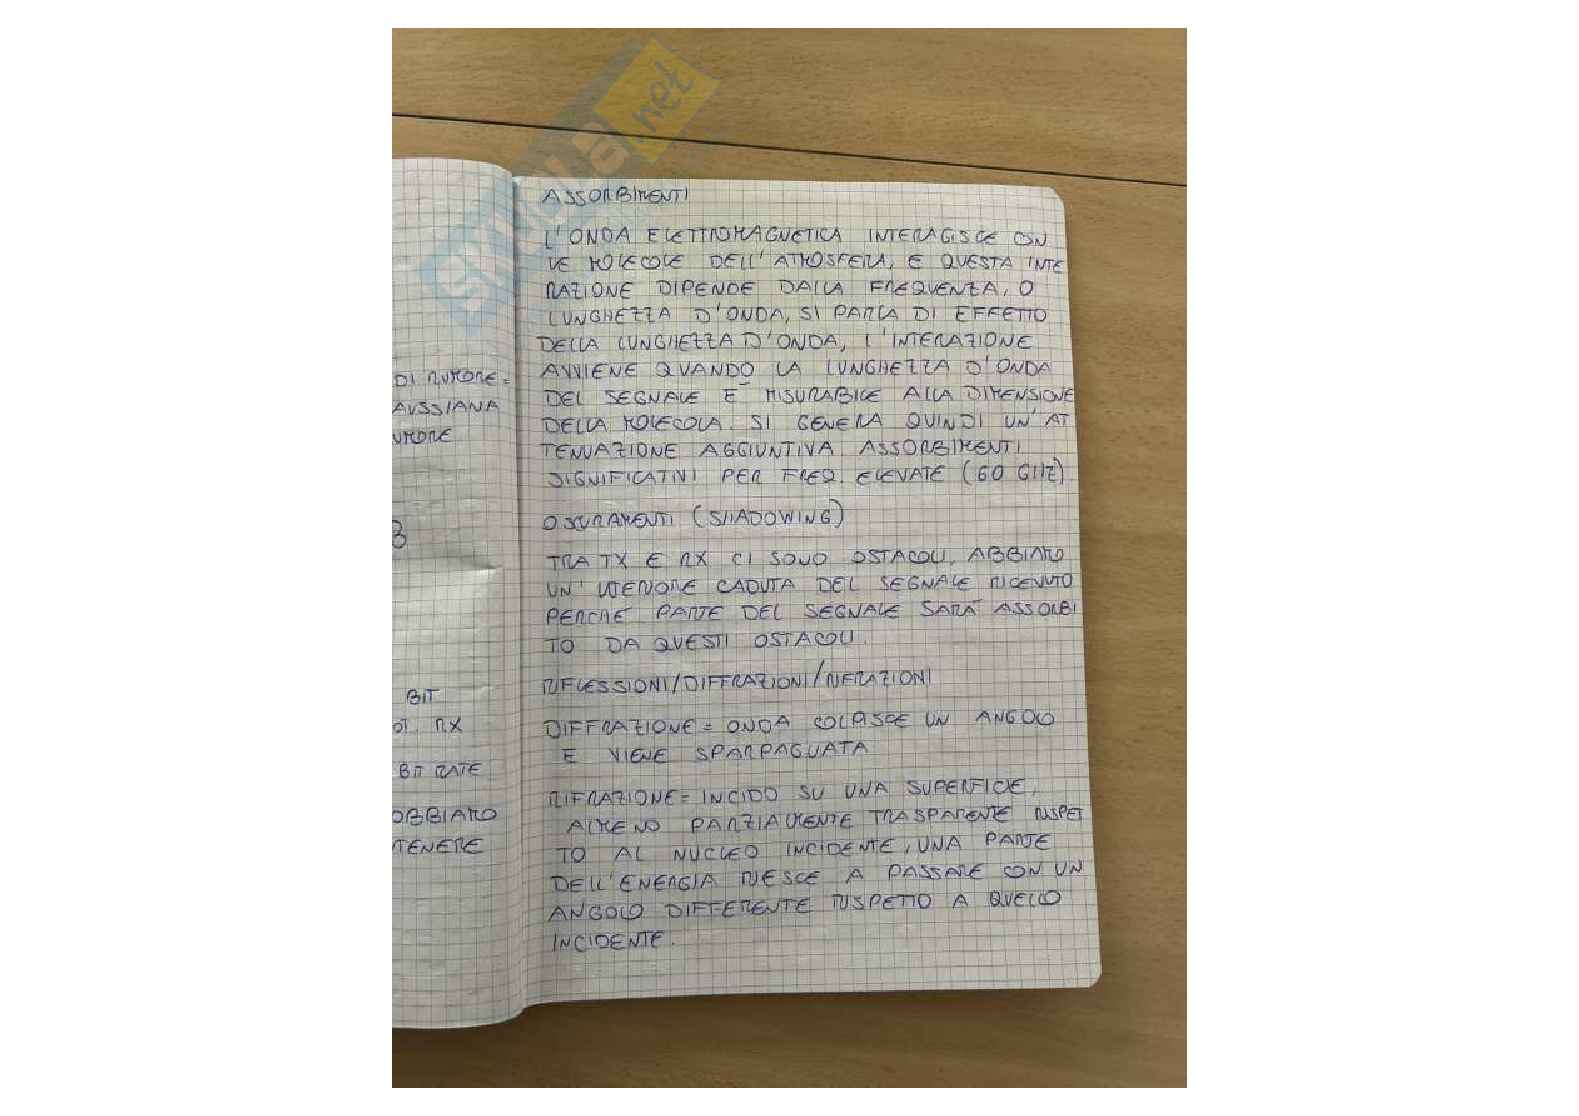 skuola.net
ASSORBIMENTI
L'ONDA ELETTROMAGNETICA INTERAGISCE CON
LE MOLECOLE DELL'ATMOSFERA, E QUESTA INTE
RAZIONE DIPENDE DALLA FREQUENZA, O
LUNGHEZZA D'ONDA, SI PARLA DI EFFETTO
DELLA LUNGHEZZA D'ONDA, L'INTERAZIONE
AVVIENE QUANDO LA LUNGHEZZA D'ONDA
DEL SEGNALE È MISURABILE ALLA DIMENSIONE
DELLA MOLECOLA. SI GENERA QUINDI UN'AT
TENUAZIONE AGGIUNTIVA. ASSORBIMENTI
SIGNIFICATIVI PER FREQ. ELEVATE (60 GHZ)
OSCURAMENTI (SHADOWING)
TRA TX E RX CI SONO OSTACOLI. ABBIAMO
UN'ULTERIORE CADUTA DEL SEGNALE RICEVUTO
PERCHÉ PARTE DEL SEGNALE SARÀ ASSORBI
TO DA QUESTI OSTACOLI.
RIFLESSIONI/DIFFRAZIONI/RIFRAZIONI
DIFFRAZIONE = ONDA COLPISCE UN ANGOLO
E VIENE SPARPAGLIATA
RIFRAZIONE = INCIDO SU UNA SUPERFICIE,
ALMENO PARZIALMENTE TRASPARENTE RISPET
TO AL NUCLEO INCIDENTE, UNA PARTE
DELL'ENERGIA RIESCE A PASSARE CON UN
ANGOLO DIFFERENTE RISPETTO A QUELLO
INCIDENTE.
DI RUMORE =
AUSSIANA
UMORE
B
BIT
OT. RX
BIT RATE
OBBIAMO
TENERE